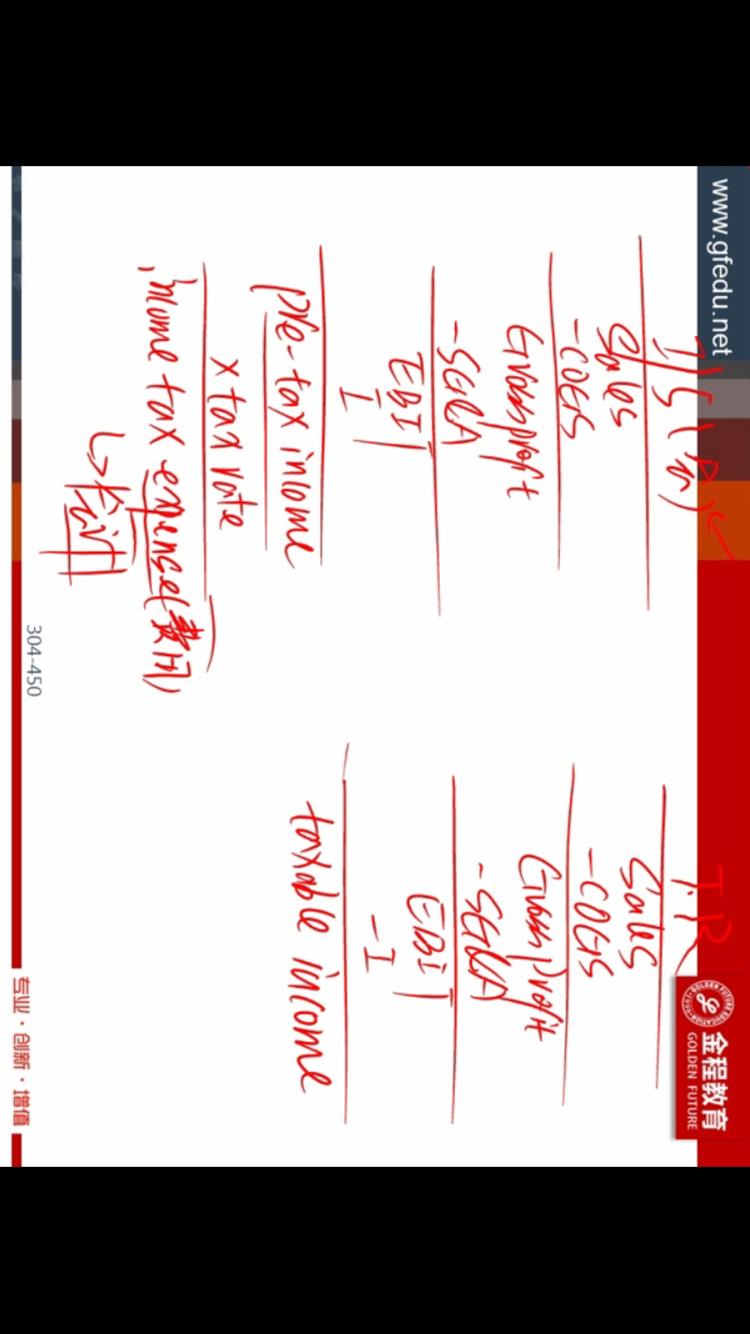 www.gfedu.net
金程教育
GOLDEN FUTURE
I/S
Sales
-COGS
Gross profit
-SG&A
EBIT
-I
pre-tax income
x tax rate
income tax expense(费用)
↳会计
T.R
Sales
-COGS
Gross profit
-SG&A
EBIT
-I
taxable income
304-450
专业·创新·增值